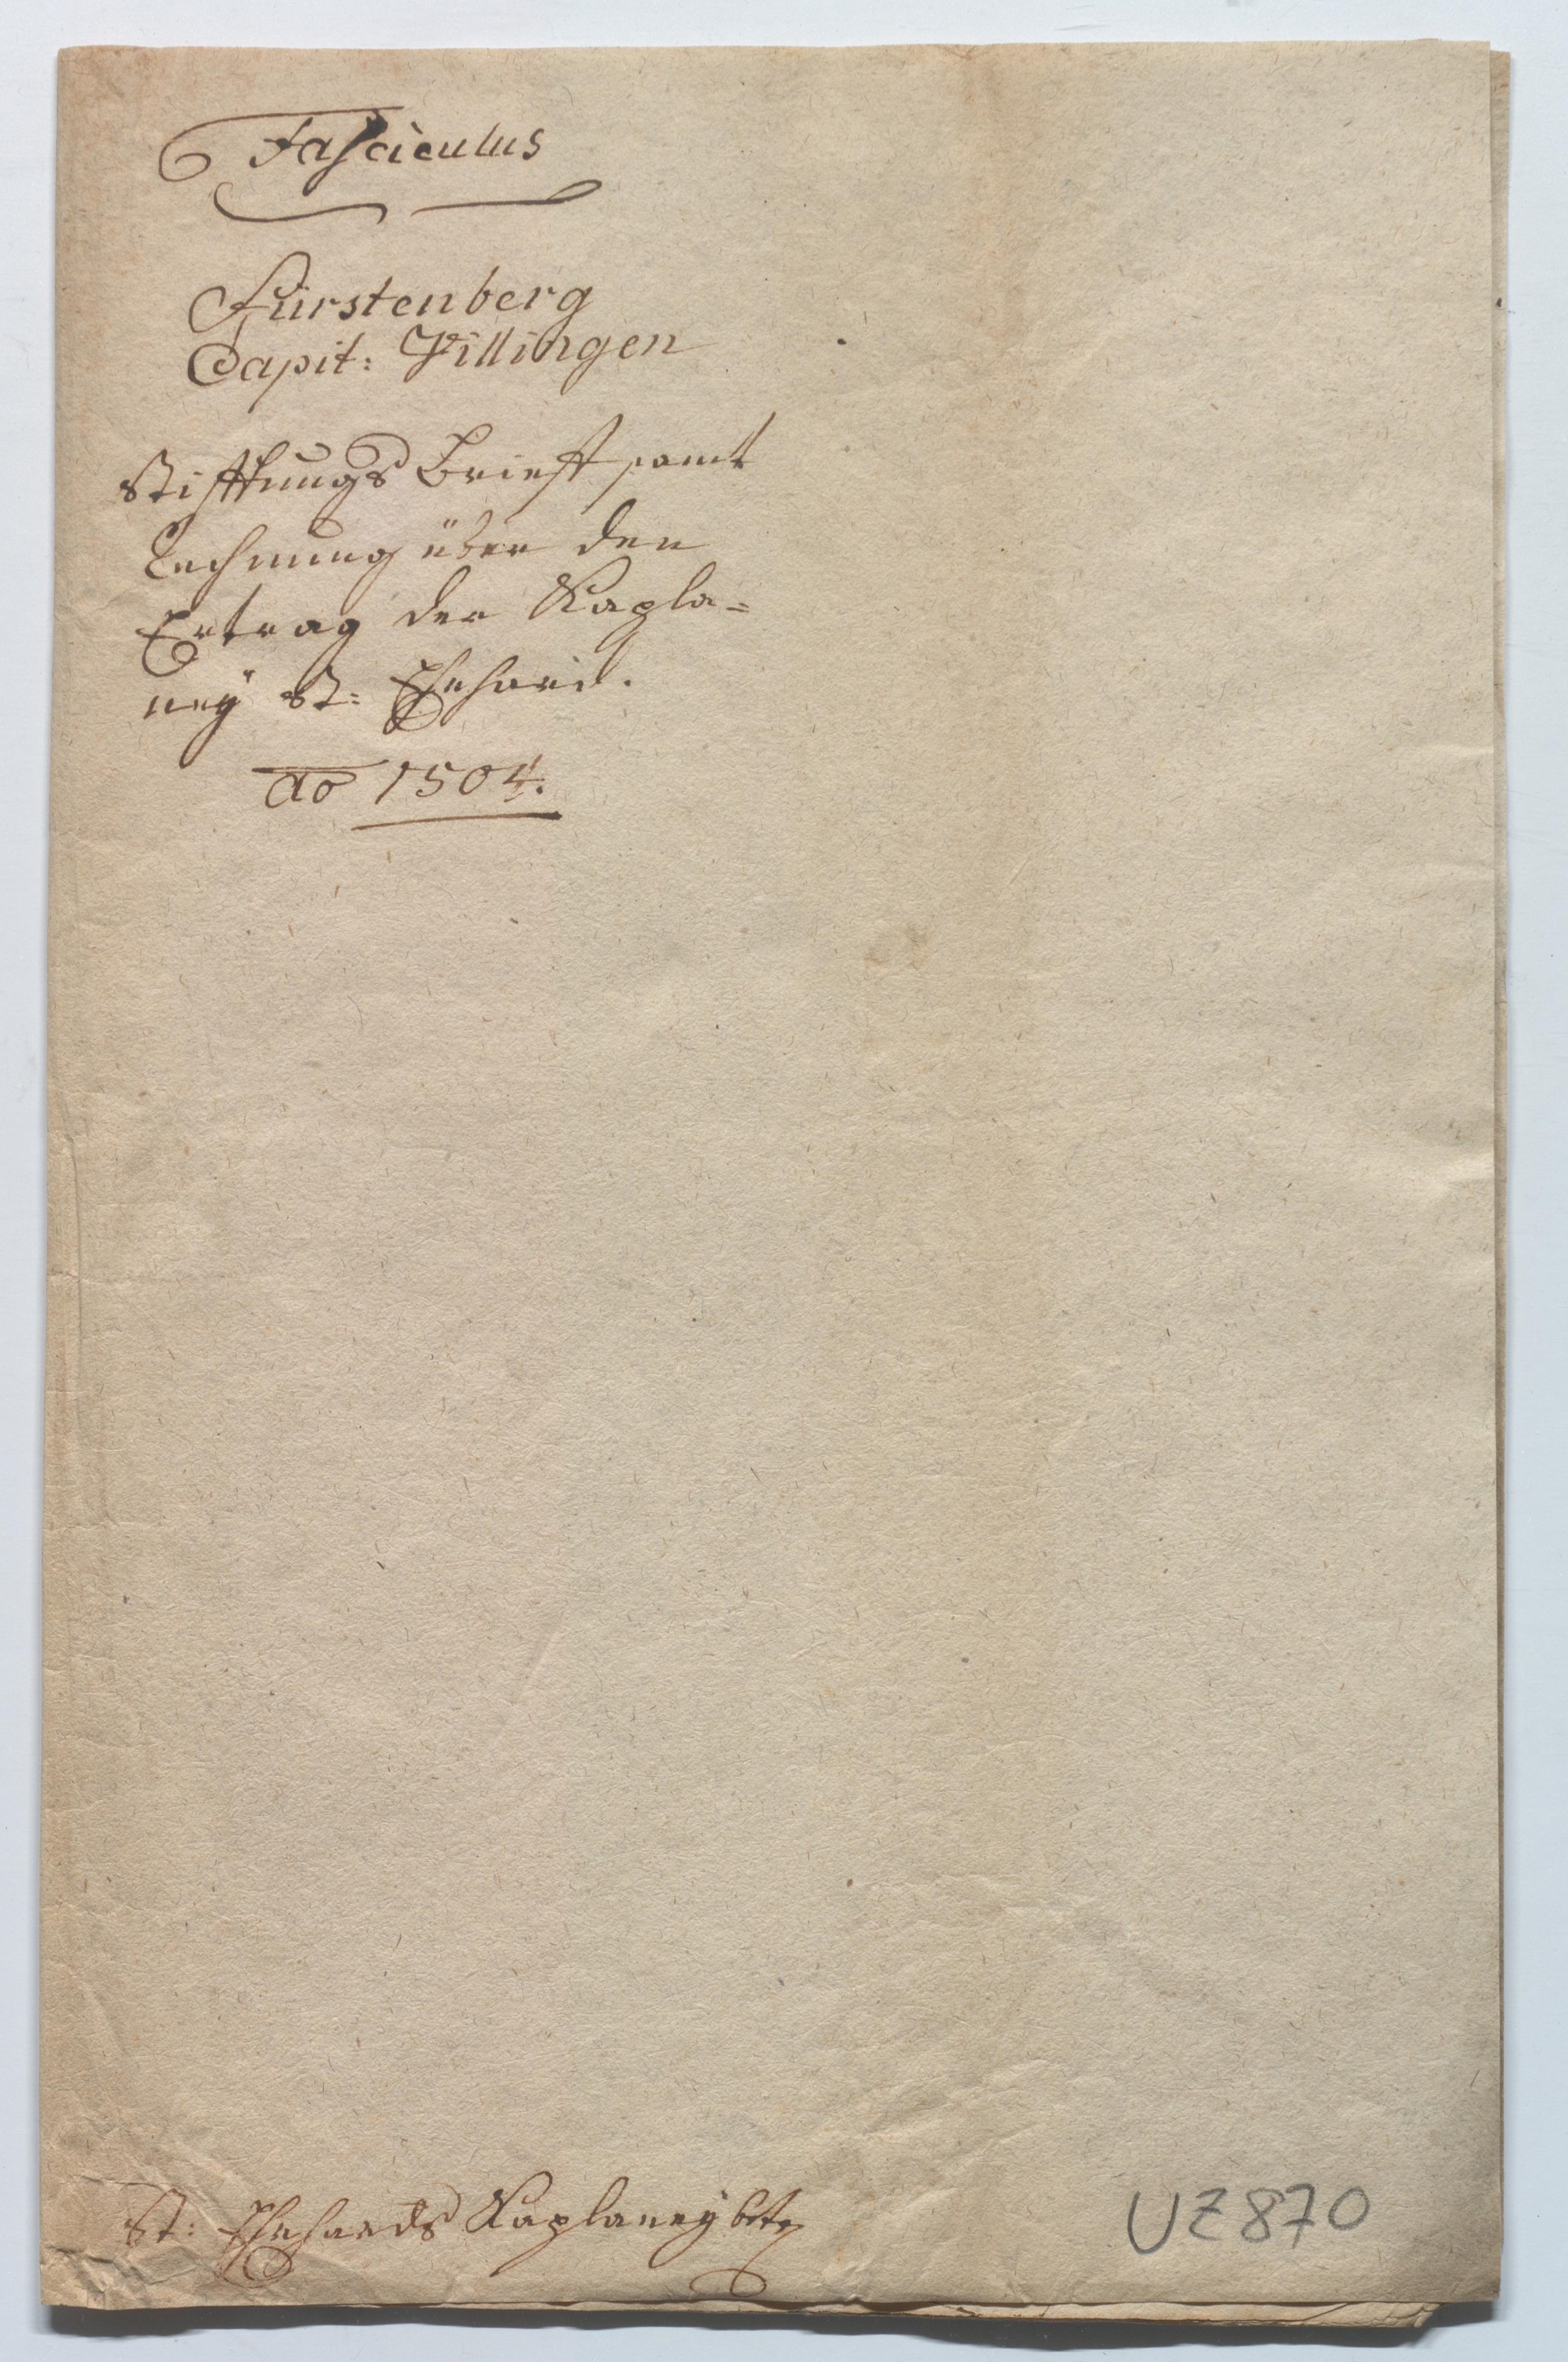 Fasciculus
Fürstenberg
Capit: Villingen
Stifftungs Brieff samt
Rechnung über den
Ertrag der Kapla=
ney St: Ehehard.
ao 1504.
St: Ehehards Kaplaney btr
UZ870